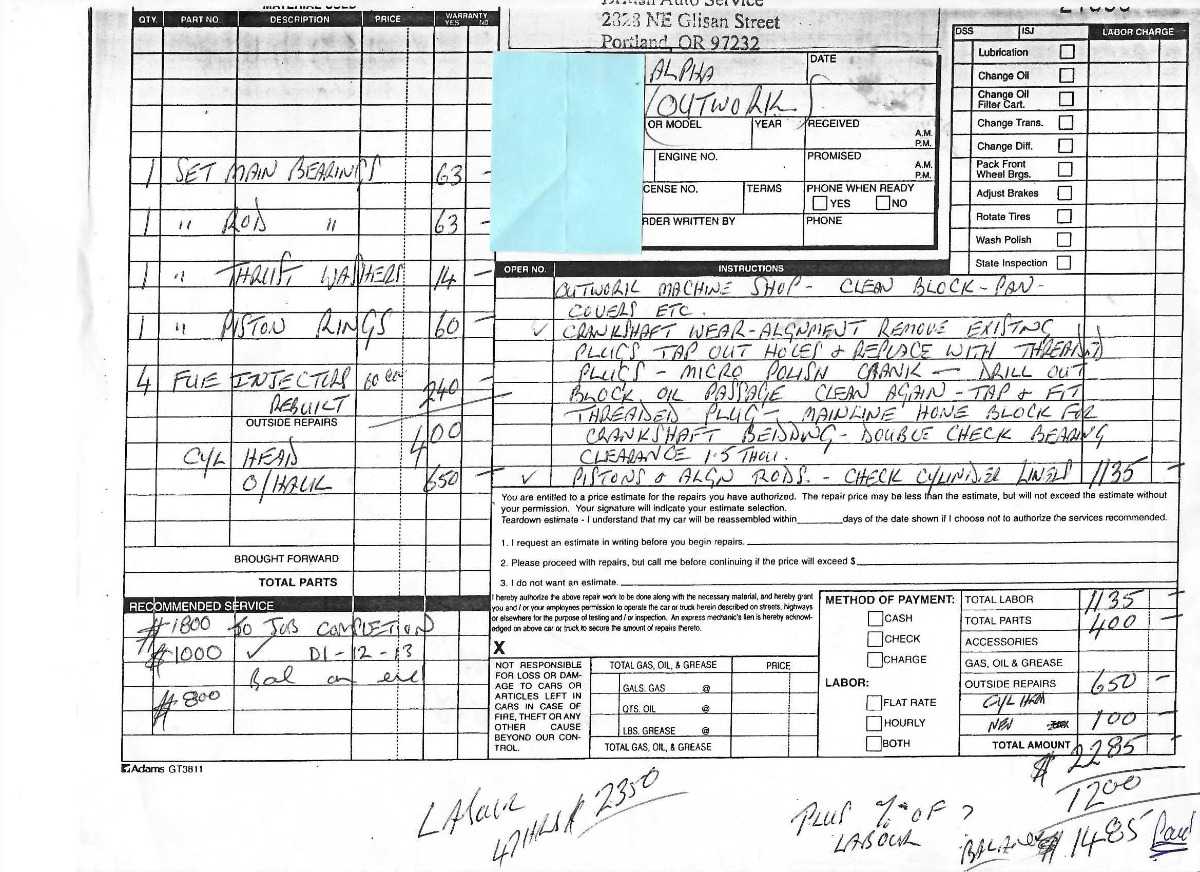 MATERIAL USED
QTY. PART NO. DESCRIPTION PRICE WARRANTY YES NO
1 SET MAIN BEARINGS 63 -
1 " ROD " 63 -
1 " THRUST WASHERS 14 -
1 " PISTON RINGS 60 -
4 FUE INJECTORS 60 240 -
REBUILT
OUTSIDE REPAIRS
400
CYL HEAD
O/HAUL 650 -
BROUGHT FORWARD
TOTAL PARTS
RECOMMENDED SERVICE
$1800 to JOB COMPLETION
$1000 ✓ 01-12-13
Bal on
$800
Adams GT3811
British Auto Service
2323 NE Glisan Street
Portland, OR 97232
ALPHA
DATE
OUTWORK
OR MODEL YEAR RECEIVED A.M. P.M.
ENGINE NO. PROMISED A.M. P.M.
CENSE NO. TERMS PHONE WHEN READY
YES NO
RDER WRITTEN BY PHONE
DSS ISJ LABOR CHARGE
Lubrication
Change Oil
Change Oil Filter Cart.
Change Trans.
Change Diff.
Pack Front Wheel Brgs.
Adjust Brakes
Rotate Tires
Wash Polish
State Inspection
OPER NO. INSTRUCTIONS
OUTWORK MACHINE SHOP - CLEAN BLOCK - PAN -
COVERS ETC.
✓ CRANKSHAFT WEAR - ALGNMENT REMOVE EXISTING
PLUGS TAP OUT HOLES & REPLACE WITH THREADED
PLUGS - MICRO POLISH CRANK - DRILL OUT
BLOCK OIL PASSAGE CLEAN AGAIN - TAP & FIT
THREADED PLUG - MAINLINE HONE BLOCK FOR
CRANKSHAFT BEDDING - DOUBLE CHECK BEARING
CLEARANCE 1.5 THOU.
✓ PISTONS & ALGN RODS. - CHECK CYLINDER LINERS 1135 -
You are entitled to a price estimate for the repairs you have authorized. The repair price may be less than the estimate, but will not exceed the estimate without
your permission. Your signature will indicate your estimate selection.
Teardown estimate - I understand that my car will be reassembled within________days of the date shown if I choose not to authorize the services recommended.
1. I request an estimate in writing before you begin repairs.
2. Please proceed with repairs, but call me before continuing if the price will exceed $
3. I do not want an estimate.
I hereby authorize the above repair work to be done along with the necessary material, and hereby grant
you and / or your employees permission to operate the car or truck herein described on streets, highways
or elsewhere for the purpose of testing and / or inspection. An express mechanic's lien is hereby acknowl-
edged on above car or truck to secure the amount of repairs thereto.
X
NOT RESPONSIBLE
FOR LOSS OR DAM-
AGE TO CARS OR
ARTICLES LEFT IN
CARS IN CASE OF
FIRE, THEFT OR ANY
OTHER CAUSE
BEYOND OUR CON-
TROL.
TOTAL GAS, OIL, & GREASE PRICE
GALS. GAS @
QTS. OIL @
LBS. GREASE @
TOTAL GAS, OIL, & GREASE
METHOD OF PAYMENT:
CASH
CHECK
CHARGE
LABOR:
FLAT RATE
HOURLY
BOTH
TOTAL LABOR 1135 -
TOTAL PARTS 400 -
ACCESSORIES
GAS, OIL & GREASE
OUTSIDE REPAIRS 650 -
CYL HEAD
NEW 100 -
TOTAL AMOUNT $ 2285
1200
LABOUR
47 HRS $ 2350
PLUS % OF ?
LABOUR
BALANCE $ 1485 Paid